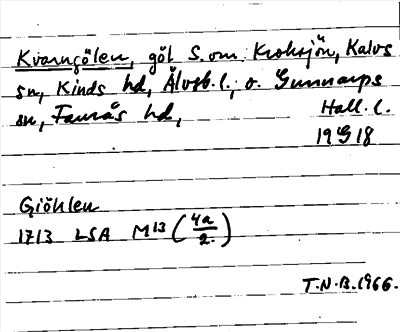 Kvarngölen, göl S. om Kroksjön, Kalvs
sn, Kinds hd, Älvsb. l., o. Gunnarps
sn, Faurås hd, Hall. l.
19 G 18
Giöhlen
1713 LSA M13 (4a/2)
T.N.B. 1966.